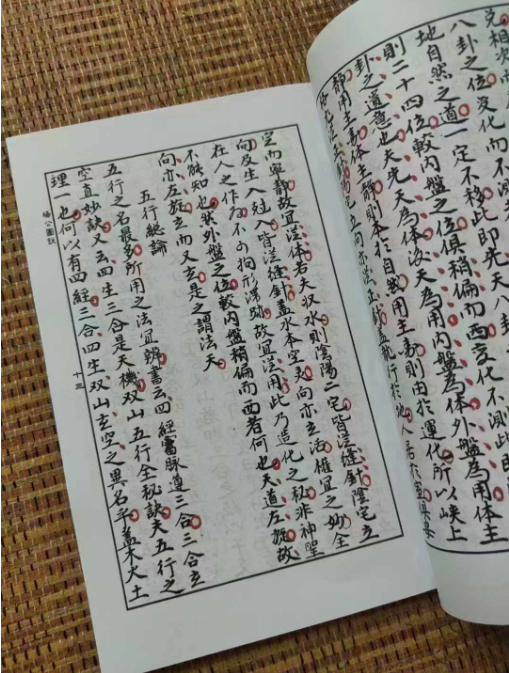 兑相
八卦之位变化而不測此即
地自然之道一定不移此即先天八卦
則二十四位較内盤之位俱稍偏而西变化不測
卦之道意也夫先天為体後天為用内盤為体外盤為用体主
靜用主動体主靜則本於自我用主動則由於運化所以峡上
定而寧靜故宜從体若夫収水則陰陽二宅皆從縫針陰宅立
向及生入尅入皆從縫針蓋水本空灵向亦立活權宜之妙全
在人之作為不可拘形滞跡故宜法用此乃造化之秘非神聖
不能知也然外盤之位較内盤稍偏而西者何也天道左旋故
向亦左旋立而又玄是之謂法天
五行總論
五行之名最多所用之法宜辨書云四經富脉遵三合三合立
向空直妙訣又云四生三合是天機双山五行全秘訣夫五行之
理一也何以有四經三合四生双山玄空之異名乎蓋木火土
楊公圖説
十三